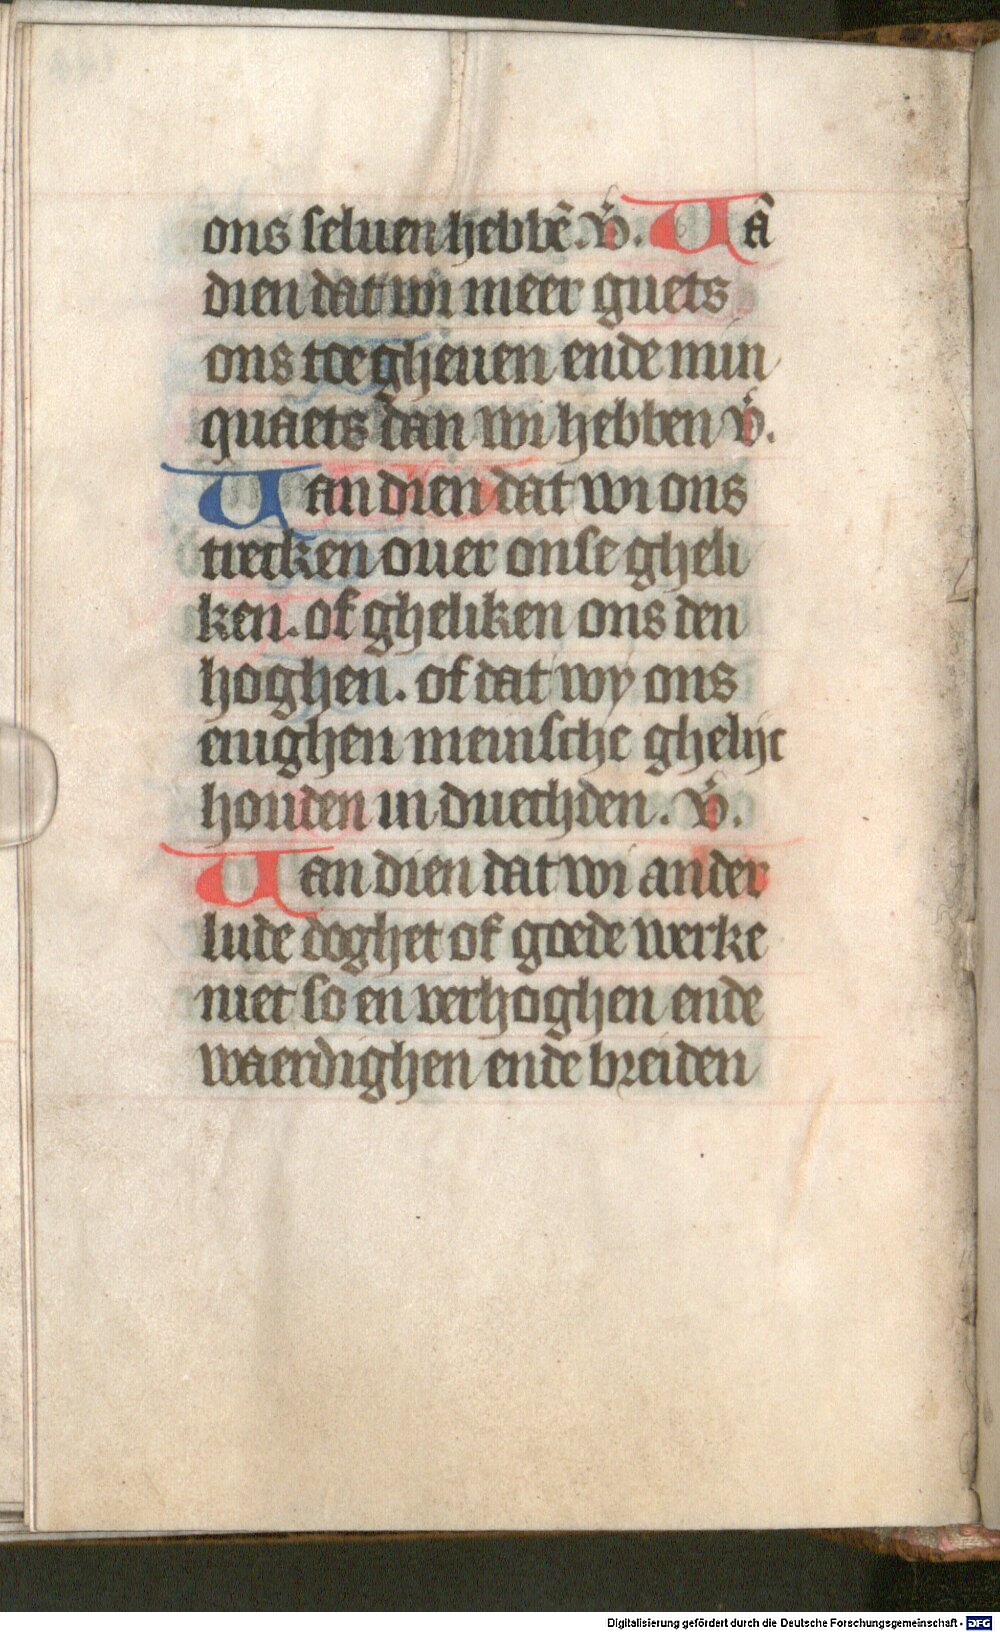 ons seluen hebbē. v̄. Uā
dien dat wi meer guets
ons toe gheuen ende min
quaets dan wi hebben v̄.
Uan dien dat wi ons
trecken ouer onse gheli
ken. of gheliken ons den
hoghen. of dat wy ons
enighen meinsche ghelijc
houden in duechden. v̄.
Uan dien dat wi ander
lude doghet of goede werke
niet so en verhoghen ende
waerdighen ende breiden
Digitalisierung gefördert durch die Deutsche Forschungsgemeinschaft - DFG